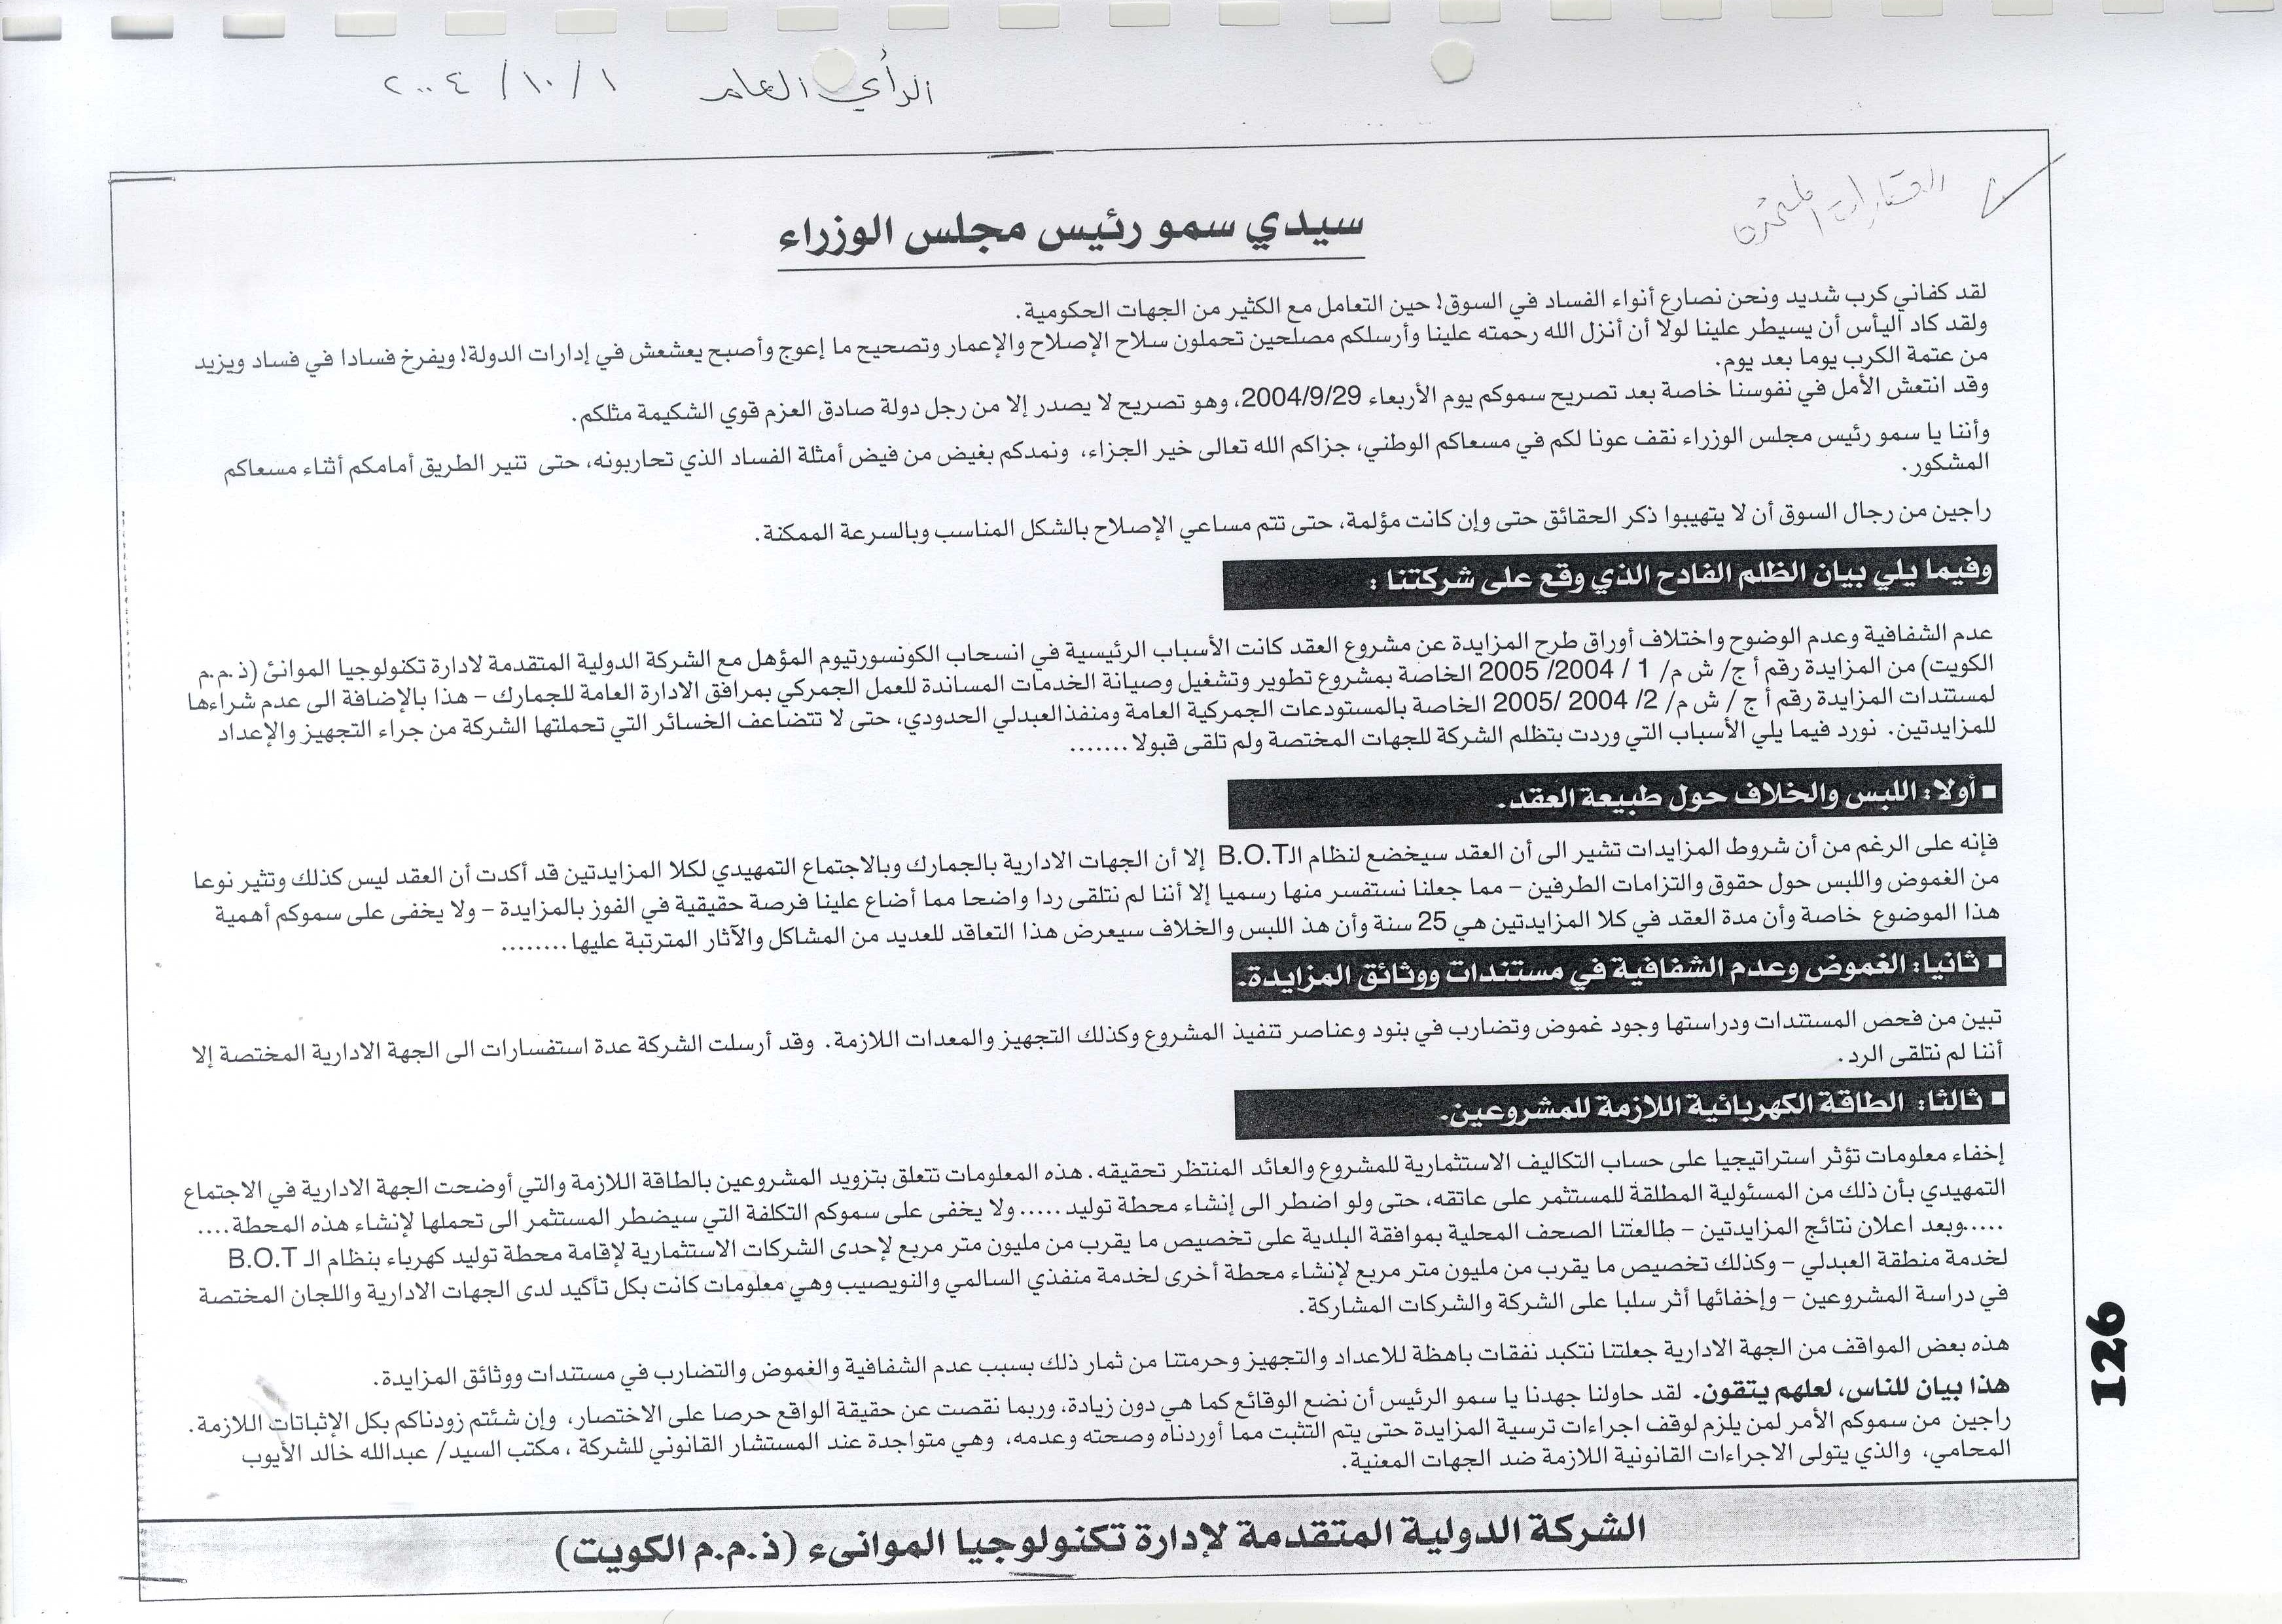 الرأي العام ١ / ١٠ / ٢٠٠٤
العقارات
سيدي سمو رئيس مجلس الوزراء
لقد كفاني كرب شديد ونحن نصارع أنواء الفساد في السوق! حين التعامل مع الكثير من الجهات الحكومية.
ولقد كاد اليأس أن يسيطر علينا لولا أن أنزل الله رحمته علينا وأرسلكم مصلحين تحملون سلاح الإصلاح والإعمار وتصحيح ما إعوج وأصبح يعشعش في إدارات الدولة! ويفرخ فسادا في فساد ويزيد
من عتمة الكرب يوما بعد يوم.
وقد انتعش الأمل في نفوسنا خاصة بعد تصريح سموكم يوم الأربعاء 2004/9/29، وهو تصريح لا يصدر إلا من رجل دولة صادق العزم قوي الشكيمة مثلكم.
وأننا يا سمو رئيس مجلس الوزراء نقف عونا لكم في مسعاكم الوطني، جزاكم الله تعالى خير الجزاء، ونمدكم بغيض من فيض أمثلة الفساد الذي تحاربونه، حتى تنير الطريق أمامكم أثناء مسعاكم
المشكور.
راجين من رجال السوق أن لا يتهيبوا ذكر الحقائق حتى وإن كانت مؤلمة، حتى تتم مساعي الإصلاح بالشكل المناسب وبالسرعة الممكنة.
وفيما يلي بيان الظلم الفادح الذي وقع على شركتنا :
عدم الشفافية وعدم الوضوح واختلاف أوراق طرح المزايدة عن مشروع العقد كانت الأسباب الرئيسية في انسحاب الكونسورتيوم المؤهل مع الشركة الدولية المتقدمة لادارة تكنولوجيا الموانئ (ذ.م.م
الكويت) من المزايدة رقم أ ج/ ش م/ 1 / 2004/ 2005 الخاصة بمشروع تطوير وتشغيل وصيانة الخدمات المساندة للعمل الجمركي بمرافق الادارة العامة للجمارك – هذا بالإضافة الى عدم شراءها
لمستندات المزايدة رقم أ ج / ش م/ 2/ 2004 /2005 الخاصة بالمستودعات الجمركية العامة ومنفذالعبدلي الحدودي، حتى لا تتضاعف الخسائر التي تحملتها الشركة من جراء التجهيز والإعداد
للمزايدتين. نورد فيما يلي الأسباب التي وردت بتظلم الشركة للجهات المختصة ولم تلقى قبولا.......
■ أولا: اللبس والخلاف حول طبيعة العقد.
فإنه على الرغم من أن شروط المزايدات تشير الى أن العقد سيخضع لنظام الـB.O.T إلا أن الجهات الادارية بالجمارك وبالاجتماع التمهيدي لكلا المزايدتين قد أكدت أن العقد ليس كذلك وتثير نوعا
من الغموض واللبس حول حقوق والتزامات الطرفين – مما جعلنا نستفسر منها رسميا إلا أننا لم نتلقى ردا واضحا مما أضاع علينا فرصة حقيقية في الفوز بالمزايدة – ولا يخفى على سموكم أهمية
هذا الموضوع خاصة وأن مدة العقد في كلا المزايدتين هي 25 سنة وأن هذ اللبس والخلاف سيعرض هذا التعاقد للعديد من المشاكل والآثار المترتبة عليها........
■ ثانيا: الغموض وعدم الشفافية في مستندات ووثائق المزايدة.
تبين من فحص المستندات ودراستها وجود غموض وتضارب في بنود وعناصر تنفيذ المشروع وكذلك التجهيز والمعدات اللازمة. وقد أرسلت الشركة عدة استفسارات الى الجهة الادارية المختصة إلا
أننا لم نتلقى الرد.
■ ثالثا: الطاقة الكهربائية اللازمة للمشروعين.
إخفاء معلومات تؤثر استراتيجيا على حساب التكاليف الاستثمارية للمشروع والعائد المنتظر تحقيقه. هذه المعلومات تتعلق بتزويد المشروعين بالطاقة اللازمة والتي أوضحت الجهة الادارية في الاجتماع
التمهيدي بأن ذلك من المسئولية المطلقة للمستثمر على عاتقه، حتى ولو اضطر الى إنشاء محطة توليد..... ولا يخفى على سموكم التكلفة التي سيضطر المستثمر الى تحملها لإنشاء هذه المحطة....
.....وبعد اعلان نتائج المزايدتين – طالعتنا الصحف المحلية بموافقة البلدية على تخصيص ما يقرب من مليون متر مربع لإحدى الشركات الاستثمارية لإقامة محطة توليد كهرباء بنظام الـ B.O.T
لخدمة منطقة العبدلي – وكذلك تخصيص ما يقرب من مليون متر مربع لإنشاء محطة أخرى لخدمة منفذي السالمي والنويصيب وهي معلومات كانت بكل تأكيد لدى الجهات الادارية واللجان المختصة
في دراسة المشروعين – وإخفائها أثر سلبا على الشركة والشركات المشاركة.
هذه بعض المواقف من الجهة الادارية جعلتنا نتكبد نفقات باهظة للاعداد والتجهيز وحرمتنا من ثمار ذلك بسبب عدم الشفافية والغموض والتضارب في مستندات ووثائق المزايدة.
هذا بيان للناس، لعلهم يتقون. لقد حاولنا جهدنا يا سمو الرئيس أن نضع الوقائع كما هي دون زيادة، وربما نقصت عن حقيقة الواقع حرصا على الاختصار، وإن شئتم زودناكم بكل الإثباتات اللازمة.
راجين من سموكم الأمر لمن يلزم لوقف اجراءات ترسية المزايدة حتى يتم التثبت مما أوردناه وصحته وعدمه، وهي متواجدة عند المستشار القانوني للشركة ، مكتب السيد/ عبدالله خالد الأيوب
المحامي، والذي يتولى الاجراءات القانونية اللازمة ضد الجهات المعنية.
الشركة الدولية المتقدمة لإدارة تكنولوجيا الموانىء (ذ.م.م الكويت)
126